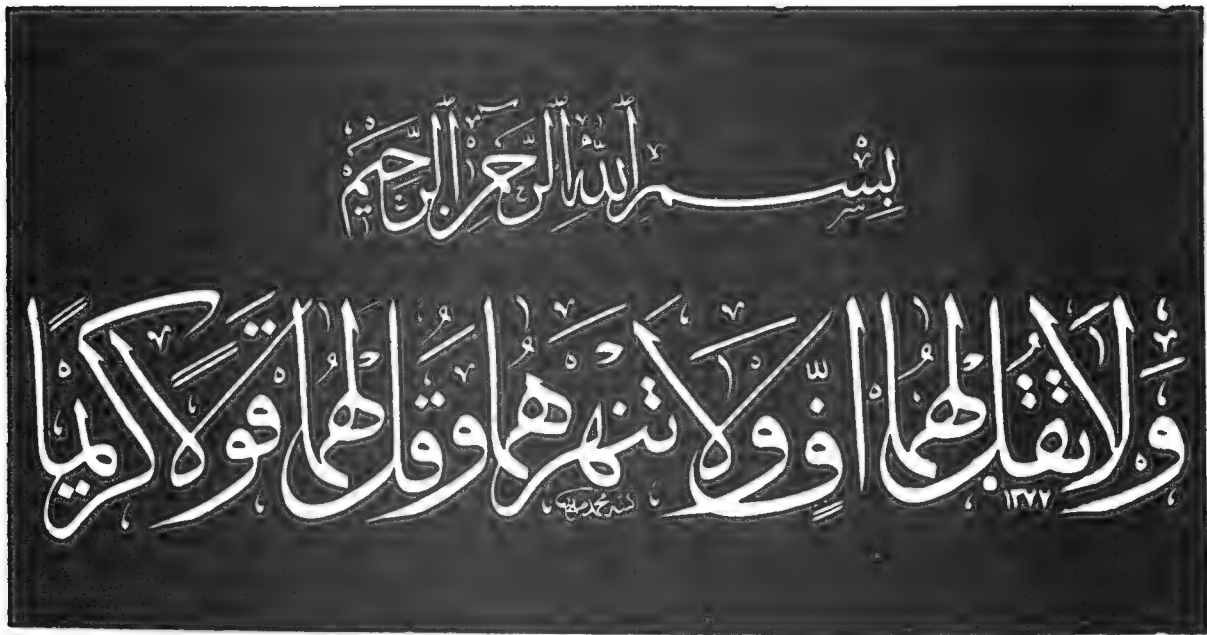 بِسْمِ ٱللَّهِ ٱلرَّحْمَٰنِ ٱلرَّحِيمِ
وَلَا تَقُلْ لَهُمَا أُفٍّ وَلَا تَنْهَرْهُمَا وَقُلْ لَهُمَا قَوْلًا كَرِيمًا
١٣٧٧
محمد